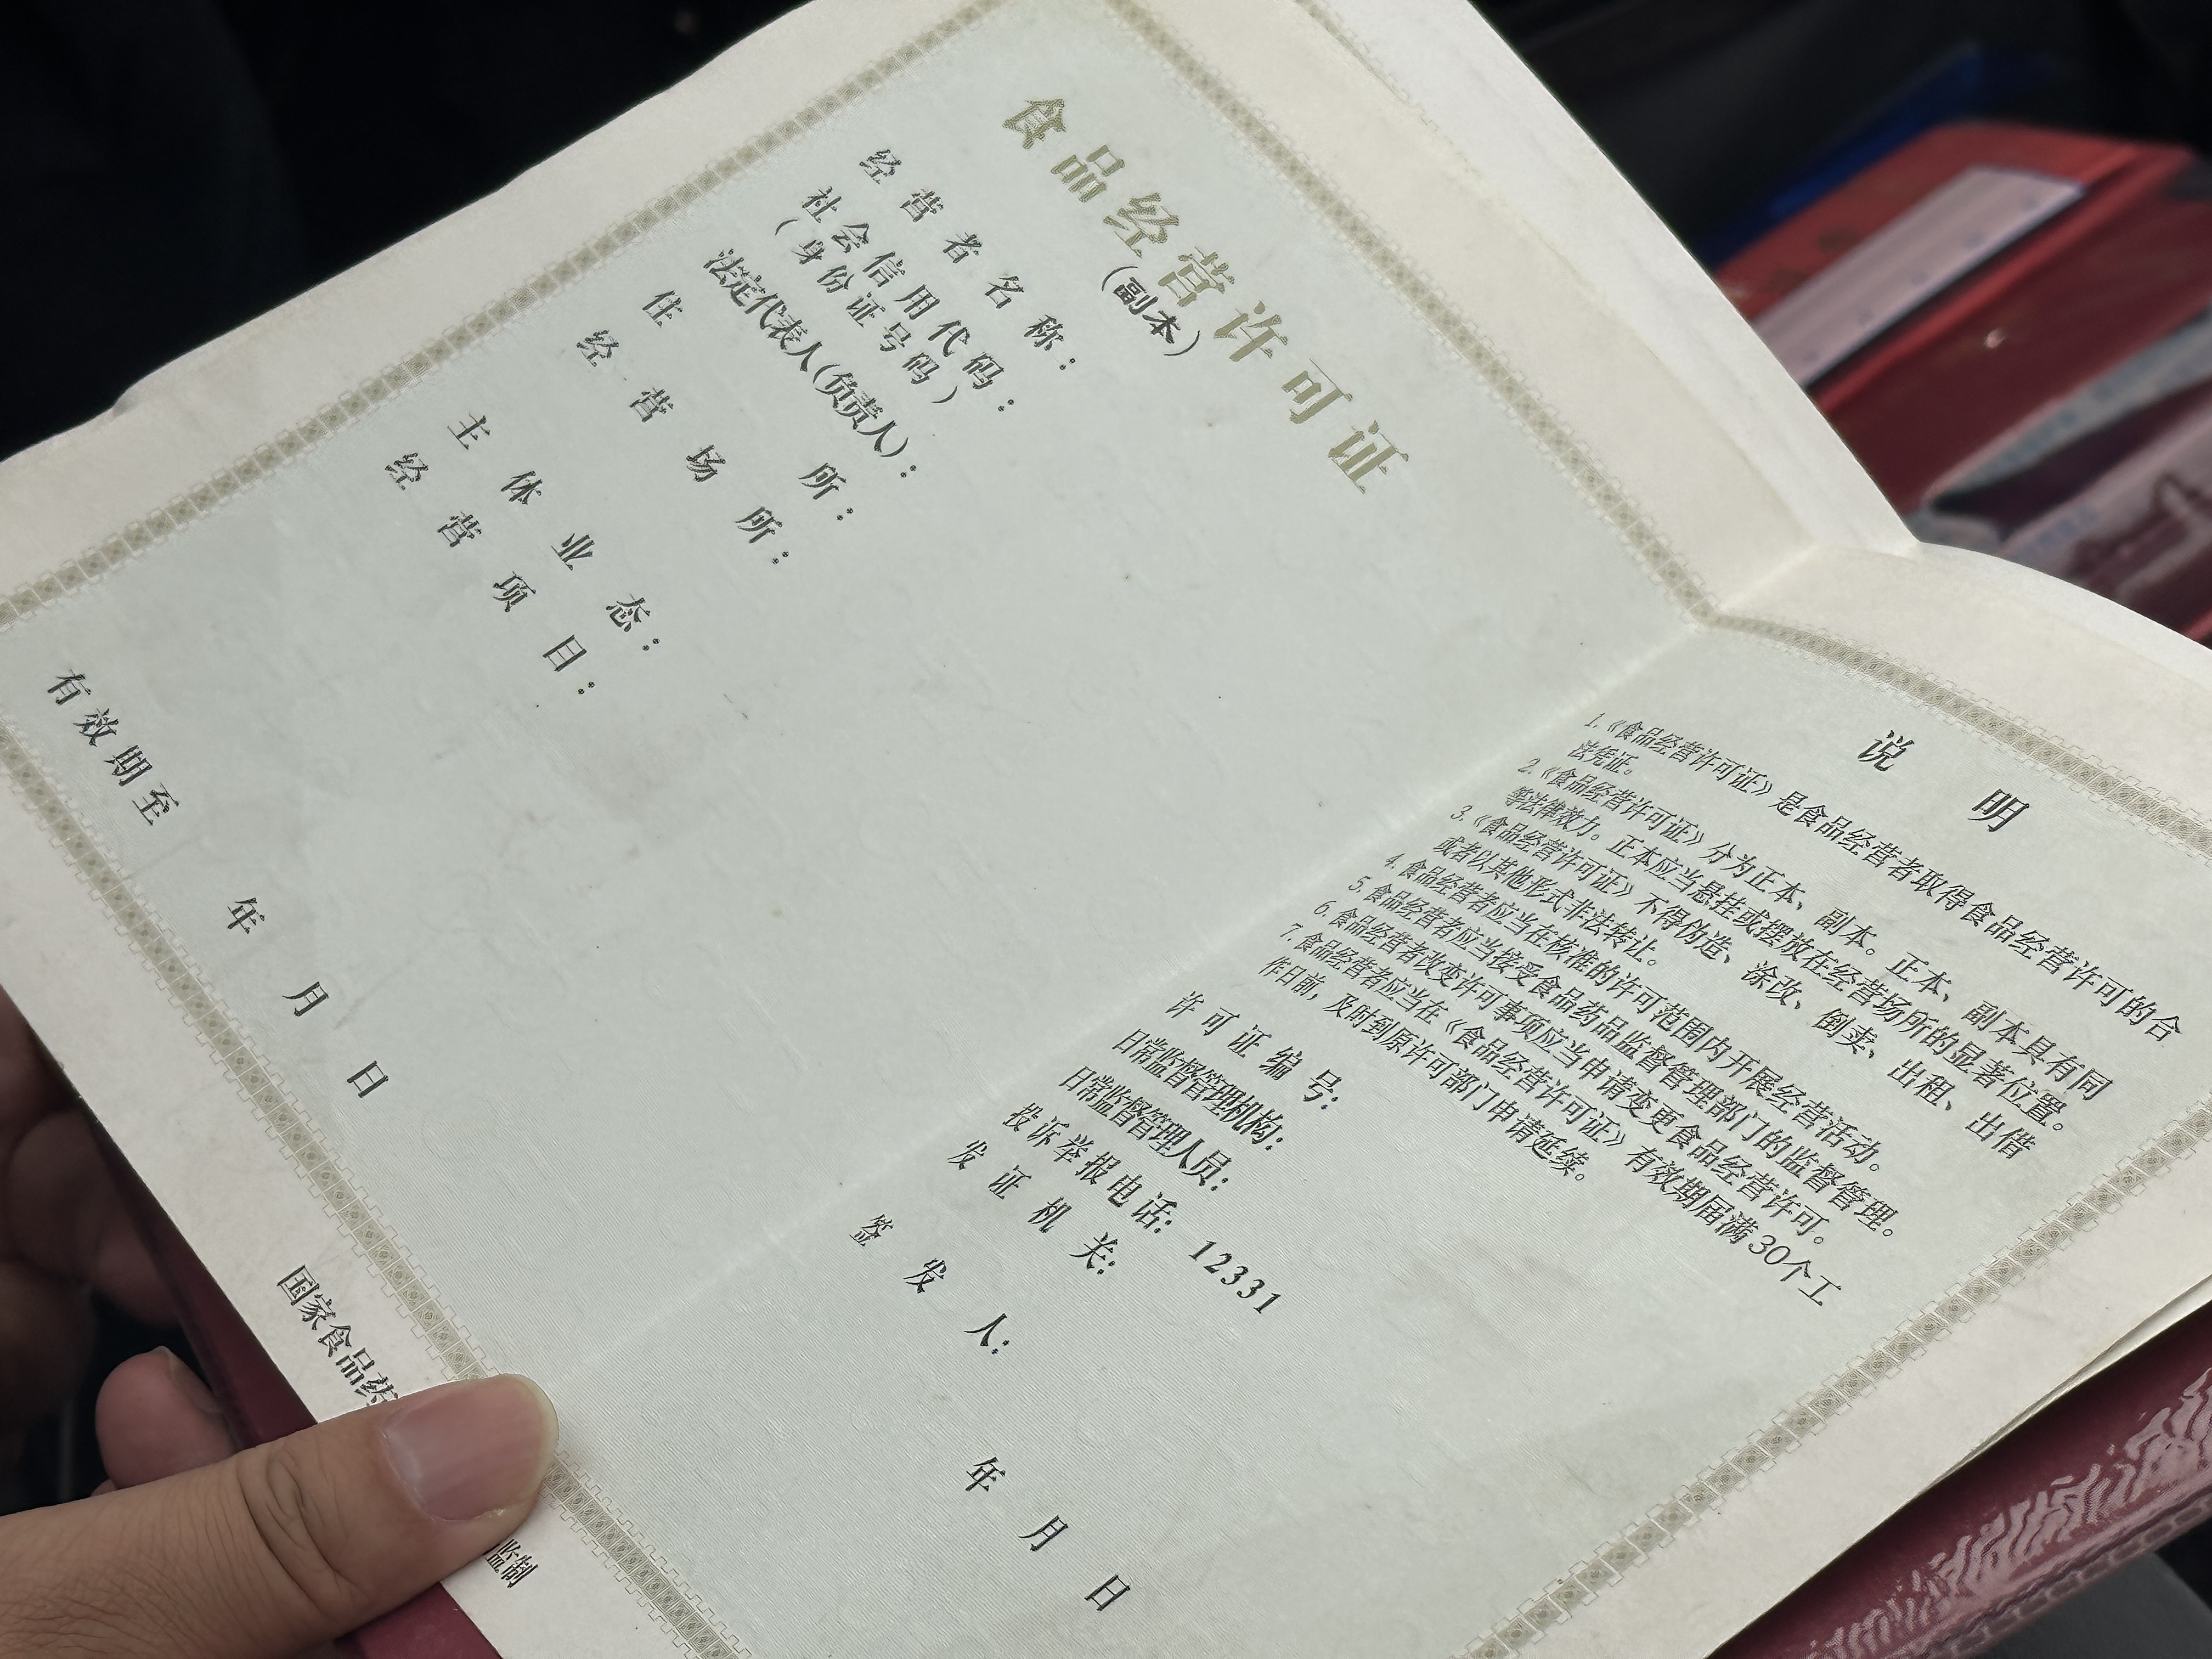 食品经营许可证
（副本）
经营者名称：
社会信用代码：
（身份证号码）
法定代表人（负责人）：
住所：
经营场所：
主体业态：
经营项目：
有效期至 年 月 日
国家食品药
监制
说明
1.《食品经营许可证》是食品经营者取得食品经营许可的合
法凭证。
2.《食品经营许可证》分为正本、副本。正本、副本具有同
等法律效力。正本应当悬挂或摆放在经营场所的显著位置。
3.《食品经营许可证》不得伪造、涂改、倒卖、出租、出借
或者以其他形式非法转让。
4.食品经营者应当在核准的许可范围内开展经营活动。
5.食品经营者应当接受食品药品监督管理部门的监督管理。
6.食品经营者改变许可事项应当申请变更食品经营许可。
7.食品经营者应当在《食品经营许可证》有效期届满30个工
作日前，及时到原许可部门申请延续。
许可证编号：
日常监督管理机构：
日常监督管理人员：
投诉举报电话：12331
发证机关：
签发人：
年 月 日